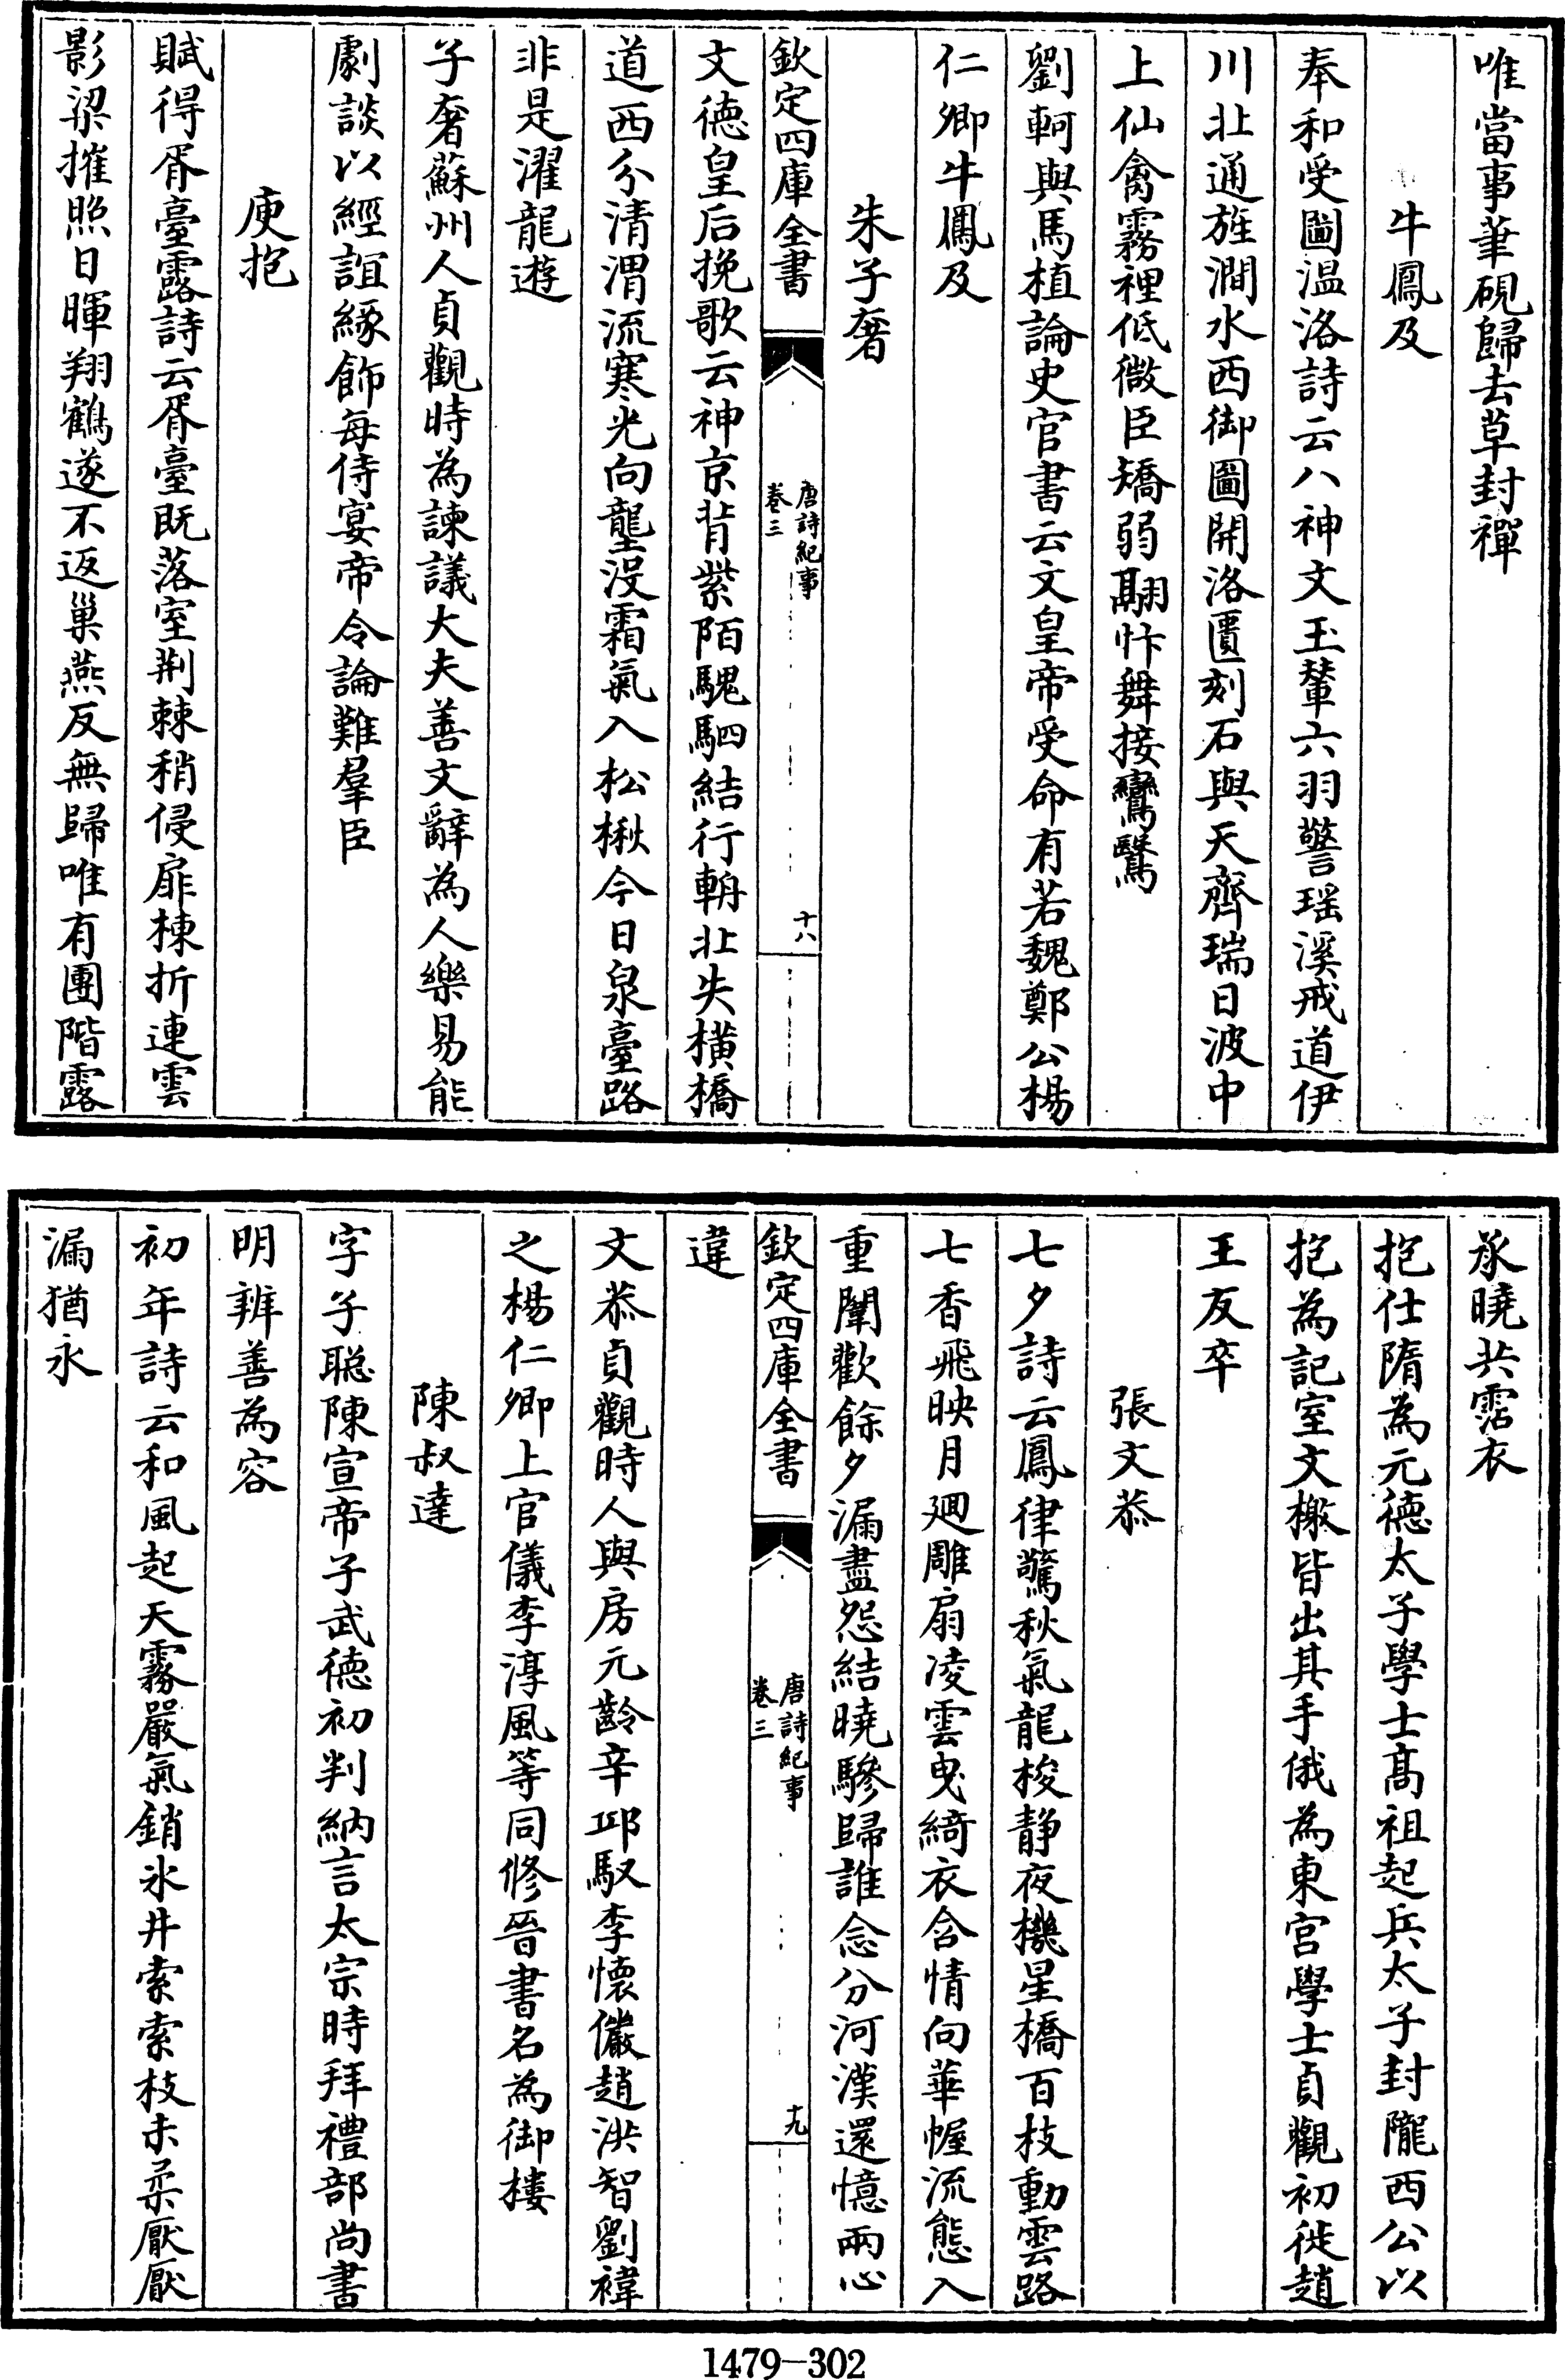 唯當事筆硯歸去草封禪
牛鳳及
奉和受圖温洛詩云八神文玉輦六羽警瑶溪戒道伊
川北通旌澗水西御圖開洛匱刻石與天齊瑞日波中
上仙禽霧裡低微臣矯弱翮忭舞接鸞鷖
劉軻與馬植論史官書云文皇帝受命有若魏鄭公楊
仁卿牛鳳及
朱子奢
欽定四庫全書
唐詩紀事
卷三
十八
文德皇后挽歌云神京背紫陌騩駟結行輈北失橫橋
道西分清渭流寒光向壟没霜氣入松楸今日泉臺路
非是濯龍遊
子奢蘇州人貞觀時為諫議大夫善文辭為人樂易能
劇談以經誼緣飾每侍宴帝令論難羣臣
庾抱
賦得胥臺露詩云胥臺既落室荆棘稍侵扉棟折連雲
影梁摧照日暉翔鶴遂不返巢燕反無歸唯有團階露
承曉共霑衣
抱仕隋為元德太子學士髙祖起兵太子封隴西公以
抱為記室文檄皆出其手俄為東宫學士貞觀初徙趙
王友卒
張文恭
七夕詩云鳳律驚秋氣龍梭静夜機星橋百枝動雲路
七香飛映月廻雕扇凌雲曳綺衣含情向華幄流態入
重闈歡餘夕漏盡怨結曉驂歸誰念分河漢還憶兩心
欽定四庫全書
唐詩紀事
卷三
十九
違
文恭貞觀時人與房元齡辛邱馭李懷儼趙洪智劉禕
之楊仁卿上官儀李淳風等同修晉書名為御樓
陳叔達
字子聦陳宣帝子武德初判納言太宗時拜禮部尚書
明辨善為容
初年詩云和風起天霧嚴氣銷氷井索索枝未柔厭厭
漏猶永
1479-302